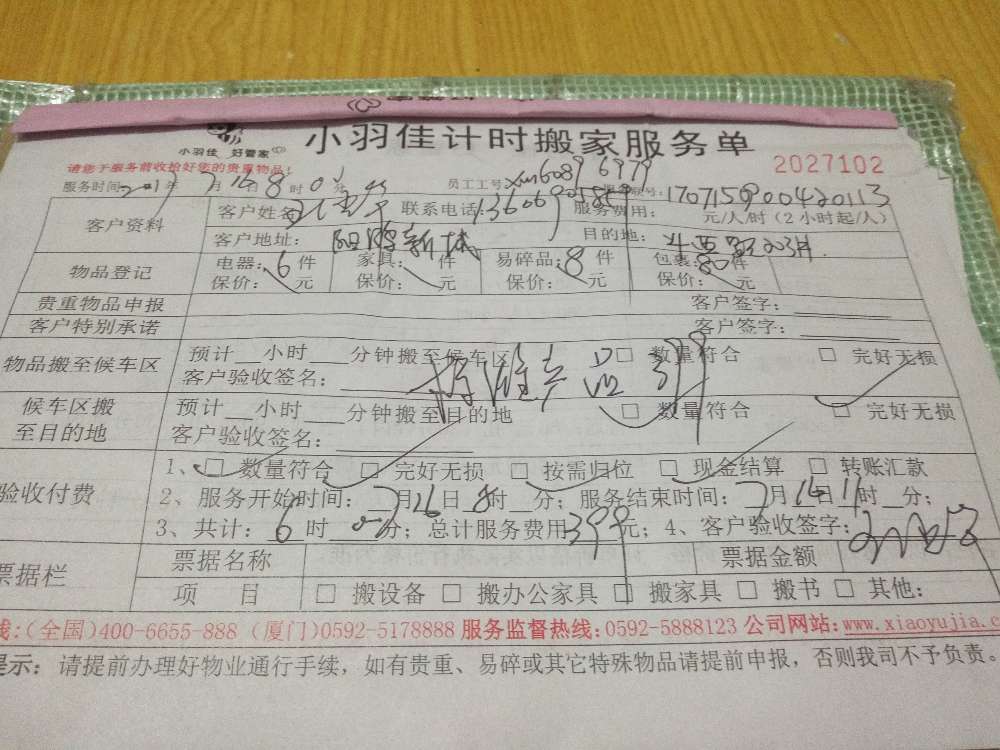 小羽佳 好管家
小羽佳计时搬家服务单
请您于服务前收拾好您的贵重物品！
2027102
服务时间 2017年7月16日8时0分 员工工号: xm6089 6979 170715900420113
客户资料 客户姓名 联系电话: 13606905859 服务费用: 元/人/时（2小时起/人）
客户地址: 新城 目的地:
物品登记 电器: 6件 家具: 件 易碎品: 8件 包装: 80件
保价: 元 保价: 元 保价: 元 保价: 元
贵重物品申报 客户签字:
客户特别承诺 客户签字:
物品搬至候车区 预计__小时__分钟搬至候车区 □ 数量符合 □ 完好无损
客户验收签名:
候车区搬至目的地 预计__小时__分钟搬至目的地 □ 数量符合 □ 完好无损
客户验收签名:
验收付费 1、□ 数量符合 □ 完好无损 □ 按需归位 □ 现金结算 □ 转账汇款
2、服务开始时间: 7月16日8时__分; 服务结束时间: 7月16日11时__分;
3、共计: 6时 分; 总计服务费用399元; 4、客户验收签字:
票据栏 票据名称 票据金额
项 目 □ 搬设备 □ 搬办公家具 □ 搬家具 □ 搬书 □ 其他:
线:(全国)400-6655-888 (厦门)0592-5178888 服务监督热线:0592-5888123 公司网站:www.xiaoyujia.c
提示: 请提前办理好物业通行手续，如有贵重、易碎或其它特殊物品请提前申报，否则我司不予负责。